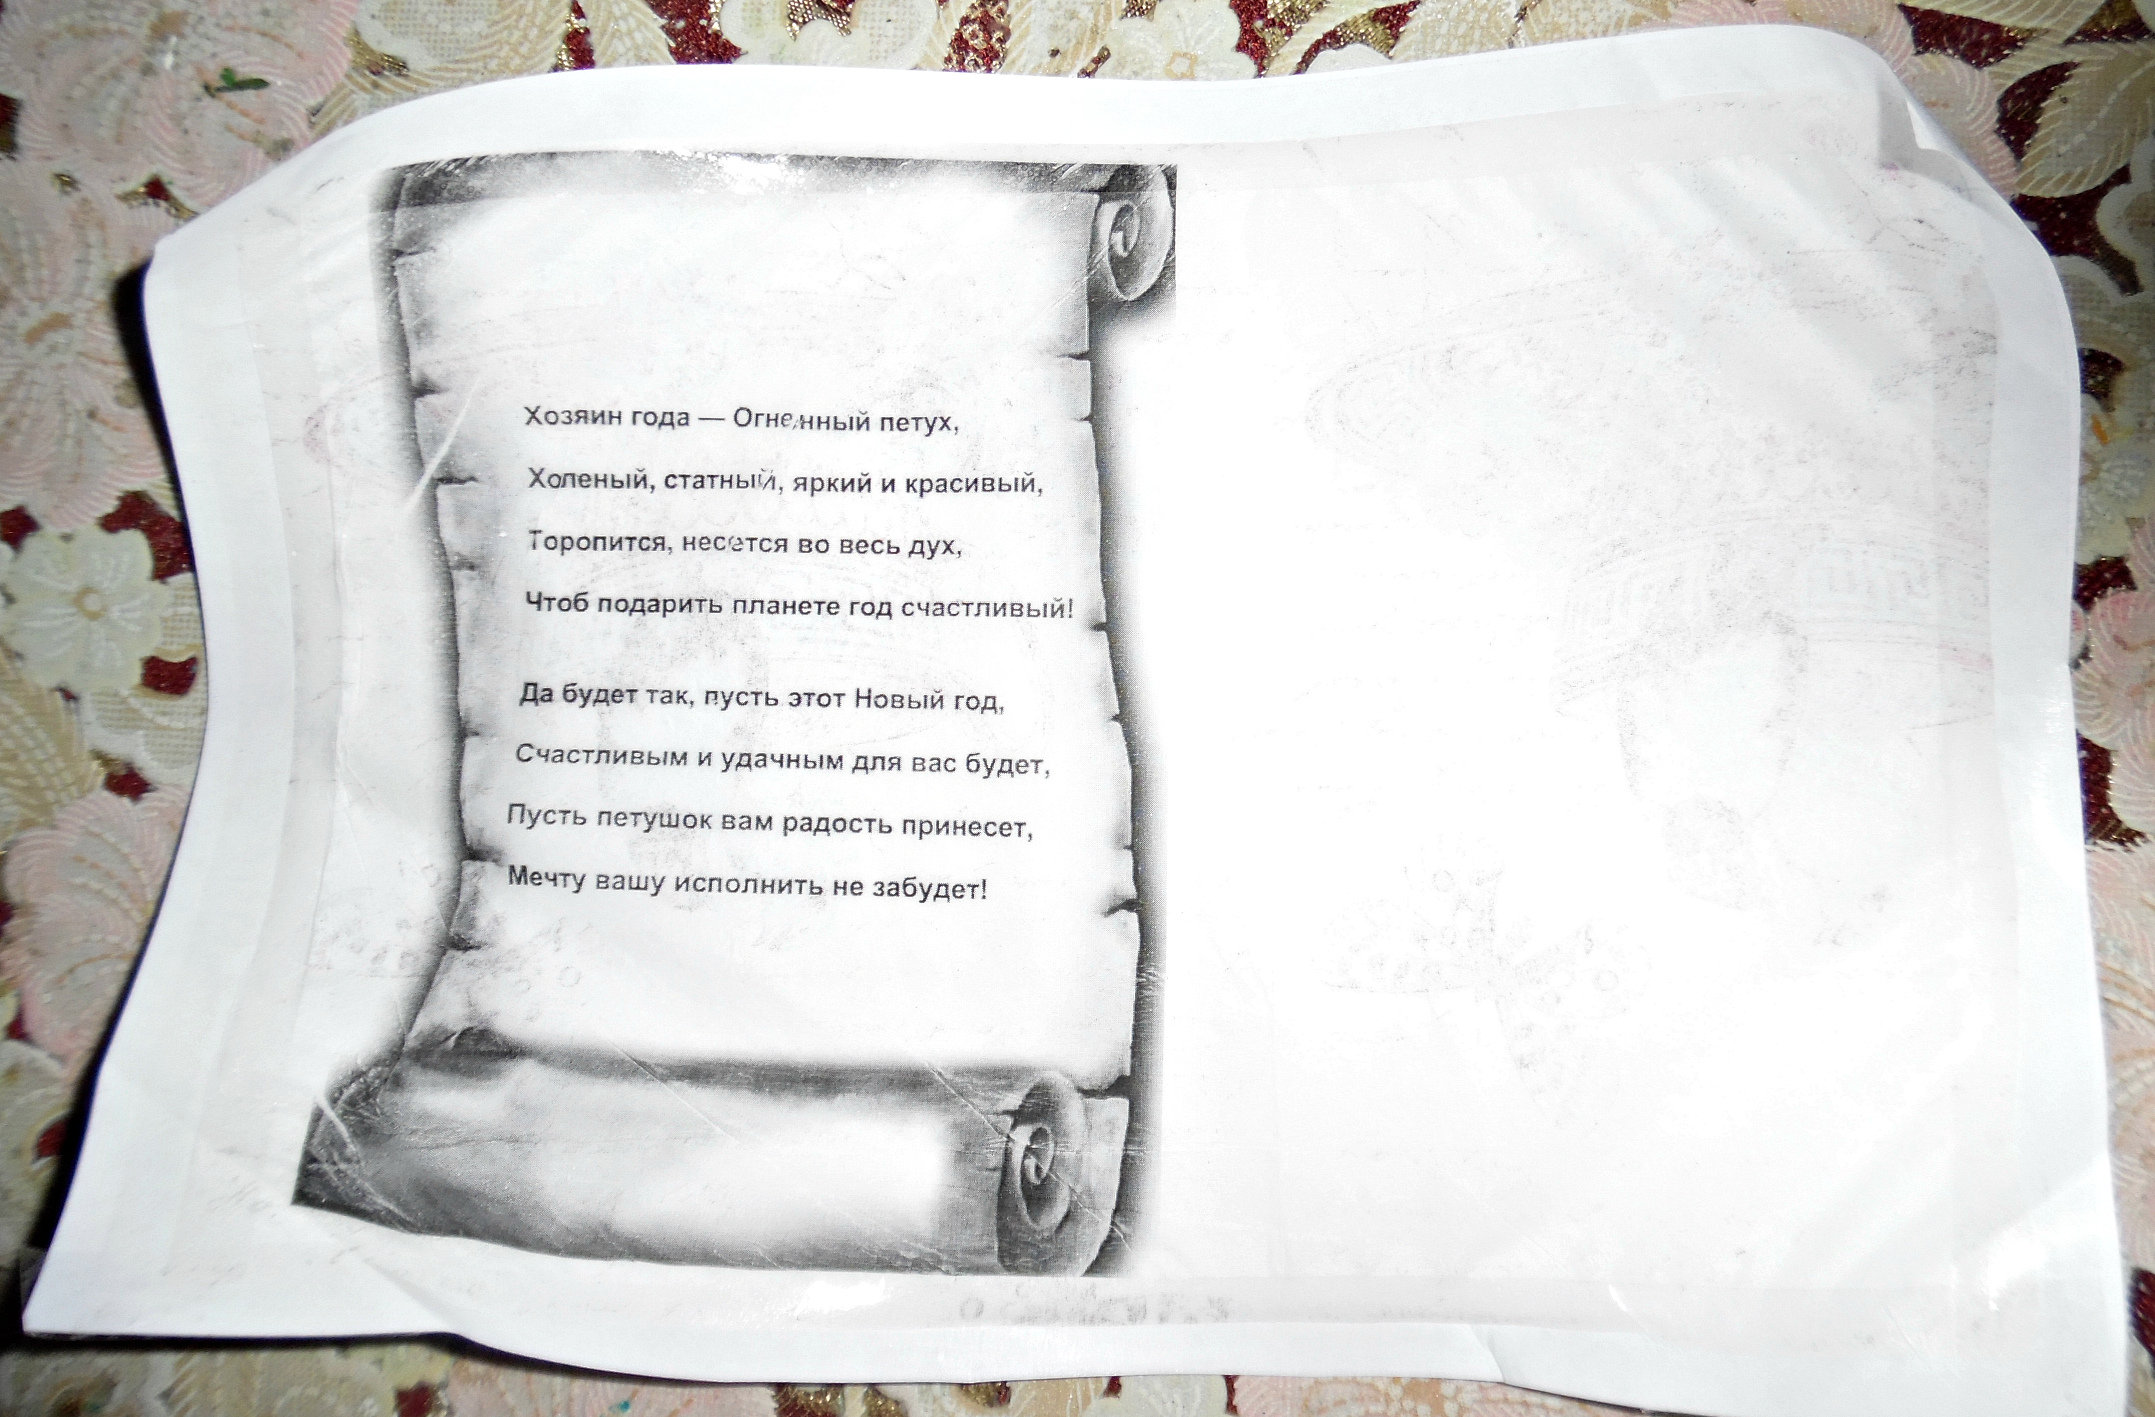 Хозяин года — Огненный петух,
Холеный, статный, яркий и красивый,
Торопится, несется во весь дух,
Чтоб подарить планете год счастливый!
Да будет так, пусть этот Новый год,
Счастливым и удачным для вас будет,
Пусть петушок вам радость принесет,
Мечту вашу исполнить не забудет!